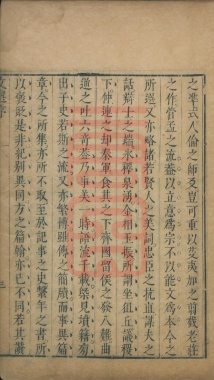 之準式人倫之師友豈可重以芟夷加之剪截老莊
之作管孟之流葢以立意爲宗不以能文爲本今之
所撰又亦略諸若賢人之美詞忠臣之抗直謀夫之
話辯士之端氷釋泉湧金相玉振所謂坐狙丘議稷
下仲連之却秦軍食其之下齊國留侯之發八難曲
逆之吐六奇葢乃事美一時語流千載槩見墳籍旁
出子史若斯之流又亦繁博雖傳之簡牘而事異篇
章今之所集亦所不取至於記事之史繫年之書所
以褒貶是非紀别異同方之篇翰亦已不同若其讚
文選序